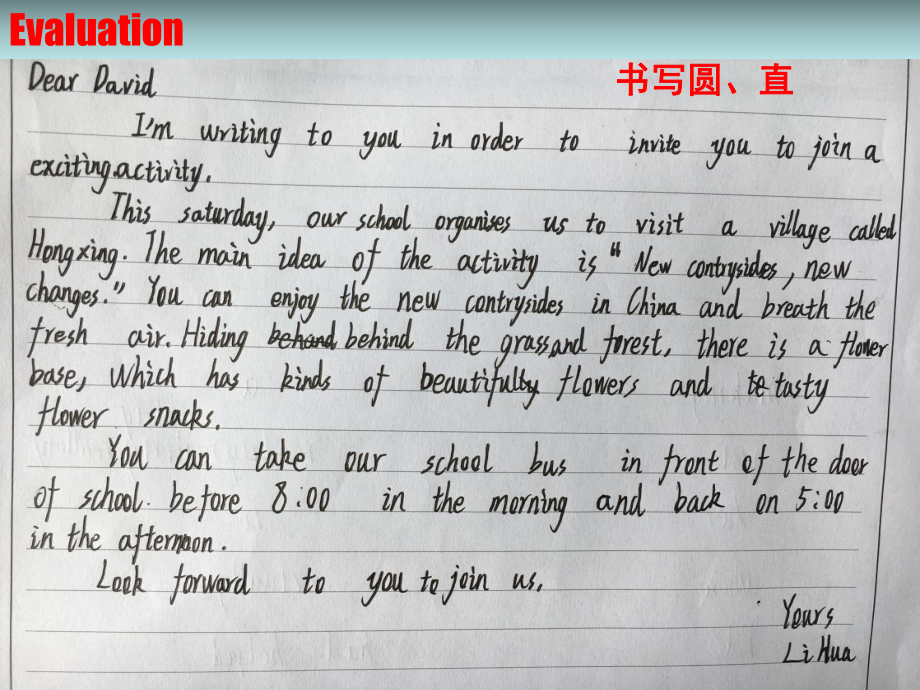 Evaluation
书写圆、直
Dear David
I'm writing to you in order to invite you to join a
exciting activity.
This saturday, our school organises us to visit a village called
Hongxing. The main idea of the activity is "New contrysides, new
changes." You can enjoy the new contrysides in China and breath the
fresh air. Hiding behand behind the grass and forest, there is a flower
base, Which has kinds of beautifully flowers and te tasty
flower snacks.
You can take our school bus in front of the door
of school before 8:00 in the morning and back on 5:00
in the afternoon.
Look forward to you to join us.
Yours
Li Hua